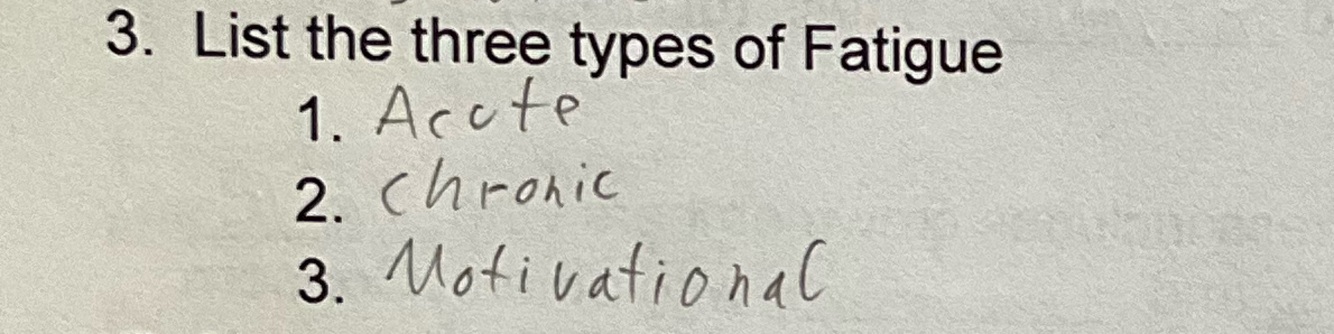 3. List the three types of Fatigue
1. Acute
2. Chronic
3. Motivational